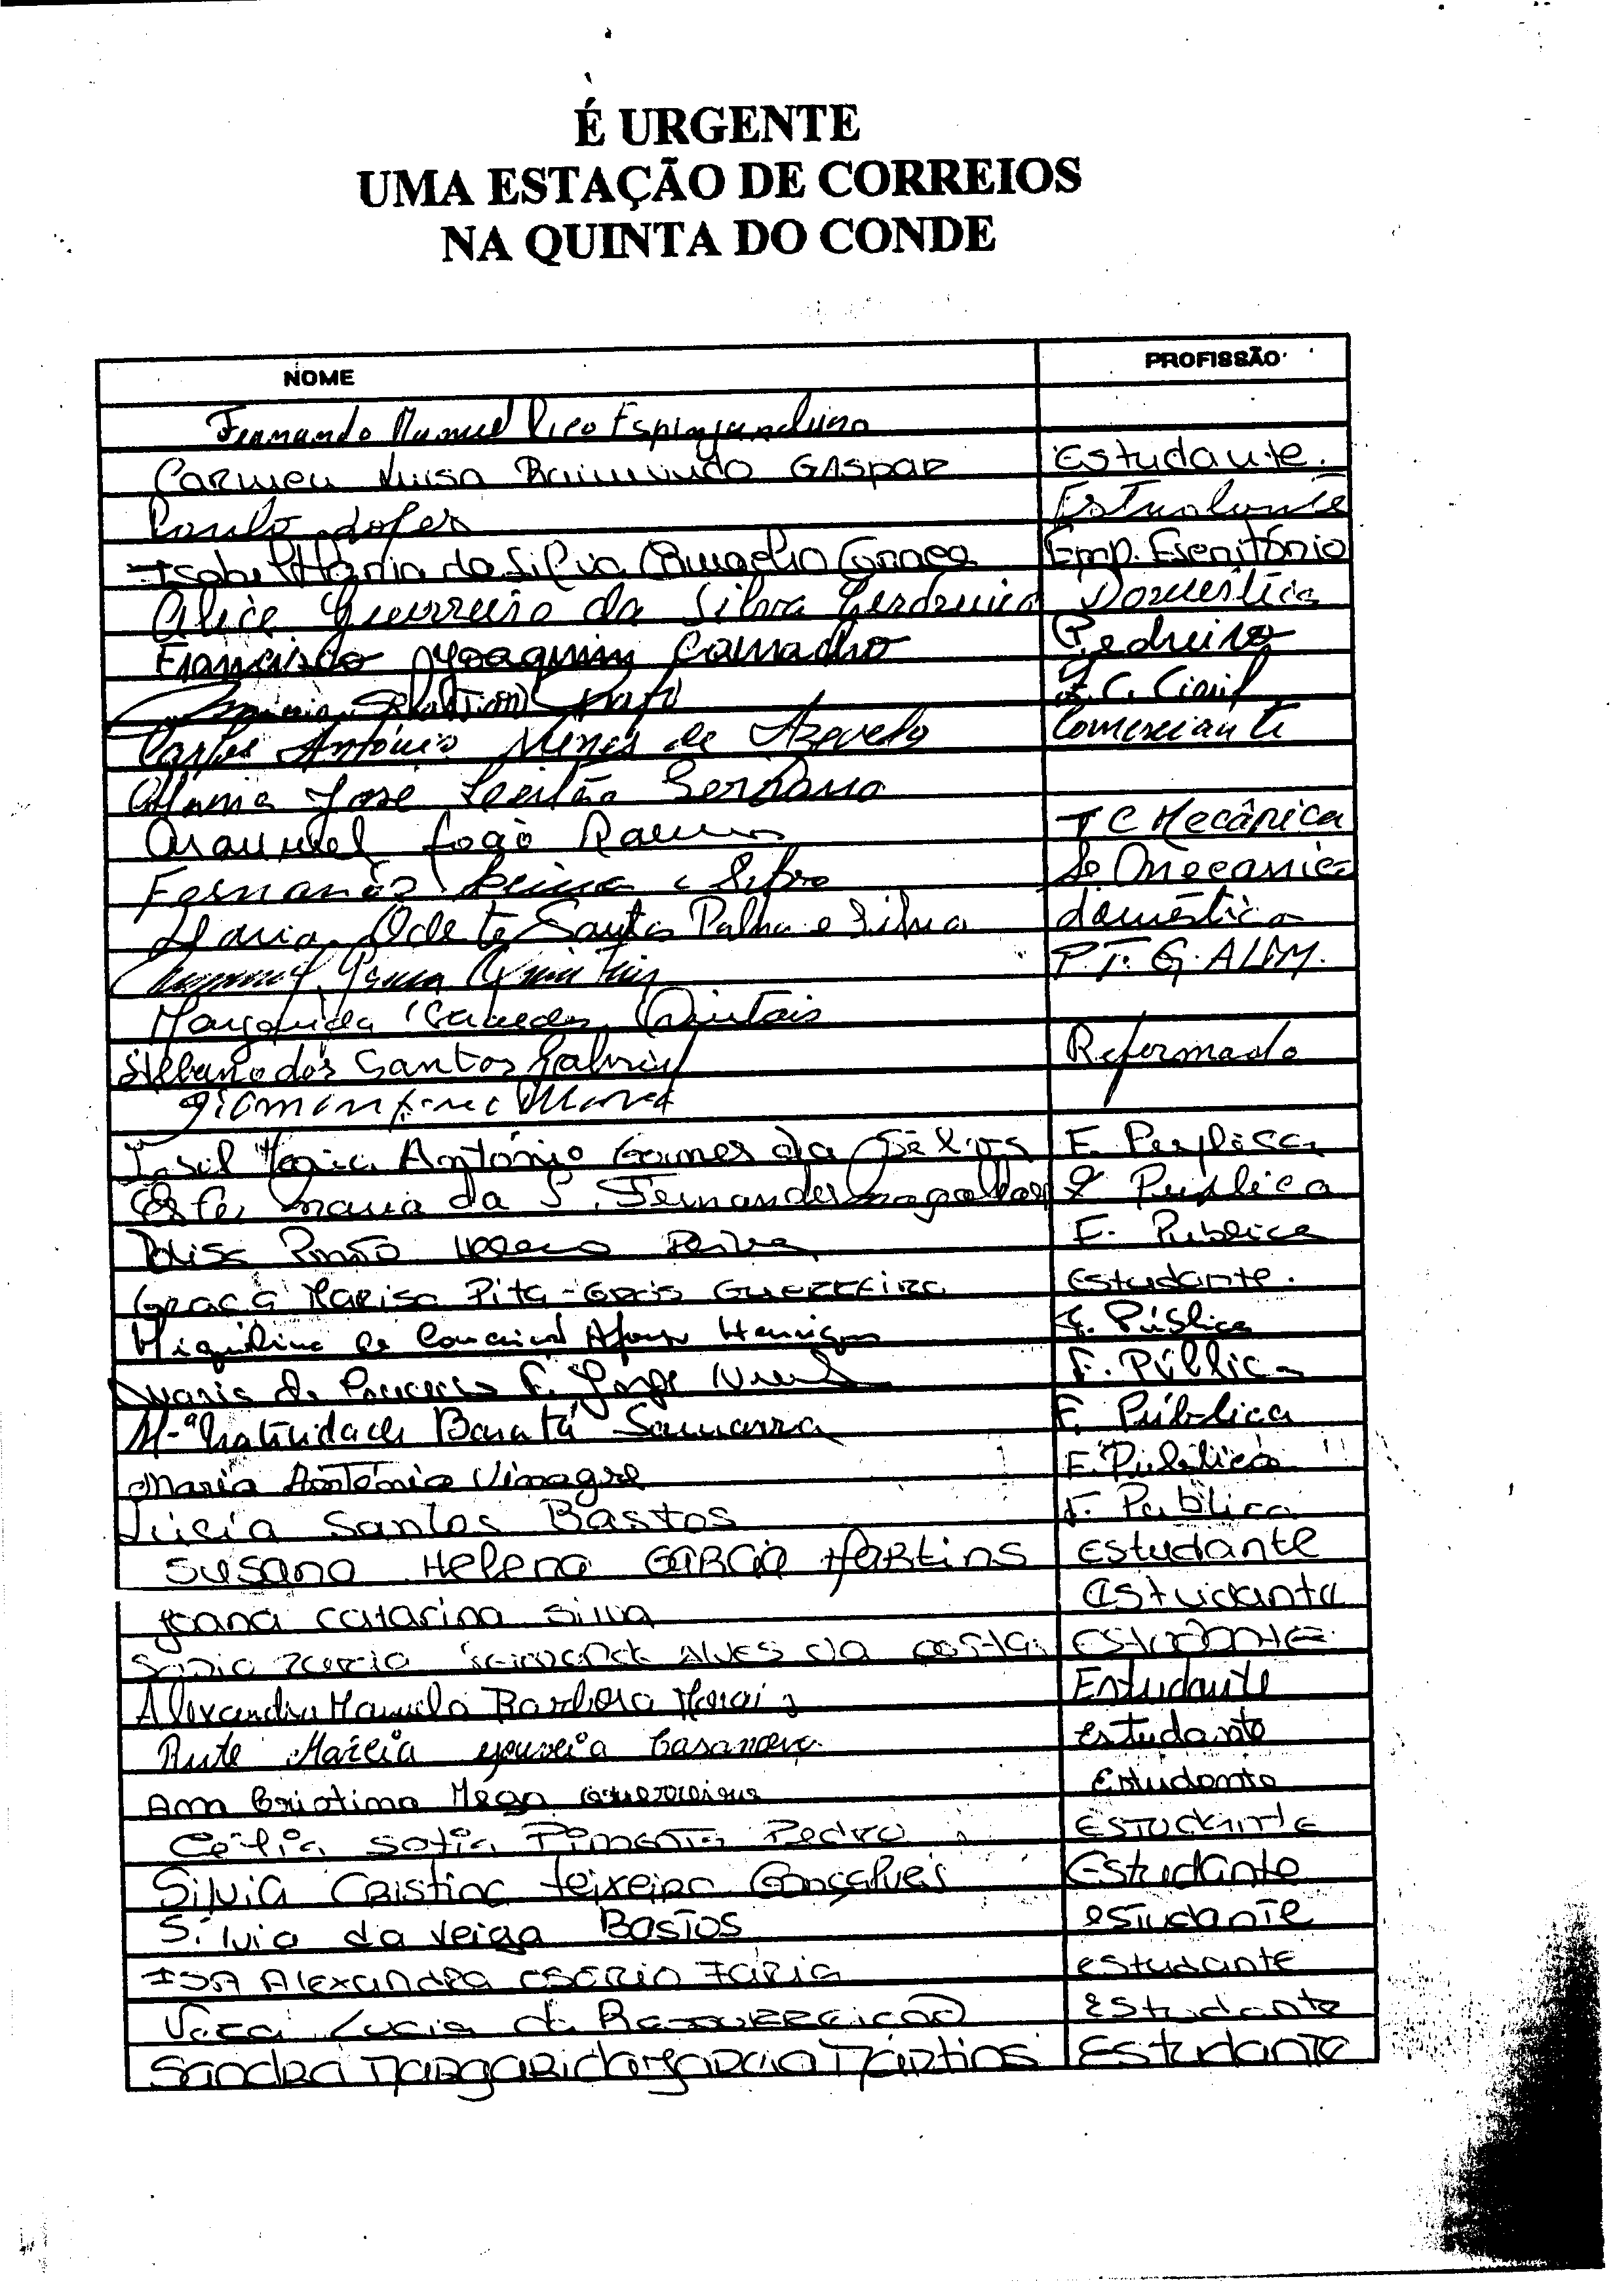 É URGENTE
UMA ESTAÇÃO DE CORREIOS
NA QUINTA DO CONDE
NOME PROFISSÃO
Fernando Manuel Espinjandeiro
Carmen Luisa Raimundo Gaspar Estudante.
Paulo Lopes Estudante
Isabel Maria da Silva Graça Emp. Escritório
Alice Guerreiro da Silva Doméstica
Francisco Joaquim Camacho Pedreiro
C. Civil
Carlos António Nunes de Azevedo Comerciante
Maria José Leitão Serrano
Manuel João Ramos T C Mecânica
Fernando e Silva Mecanica
Maria Odete Santos Palha e Silva doméstica
P.T. G. ALIM.
Margarida Quintais
Silvano dos Santos Gabriel Reformado
Isabel Maria António Gomes da F. Publica
Ester Maria da S. Fernandes Magalhães F. Publica
F. Publica
Graça Marisa Pita-Grós Guerreiro Estudante.
Miquelina da Conceição Afonso Henriques F. Pública
Maria da F. Jorge F. Pública
Mª Natividade Barata Samarra F. Pública
Maria Antónia Vinagre F. Pública
Lúcia Santos Bastos F. Publica
Susana Helena Garcia Martins Estudante
Joana Catarina Silva Estudante
Alves da Costa Estudante
Alexandra Manuela Barbosa Morais Estudante
Rute Márcia Gouveia Casanova estudante
Ana Cristina Mega Guerreiro Estudante
Célia Sofia Pimenta Pedro Estudante
Silvia Cristina Teixeira Gonçalves Estudante
Silvia da Veiga Bastos estudante
Isa Alexandra Osório Faria estudante
Vera Lucia da Ressurreição Estudante
Sandra Margarida Garcia Martins Estudante